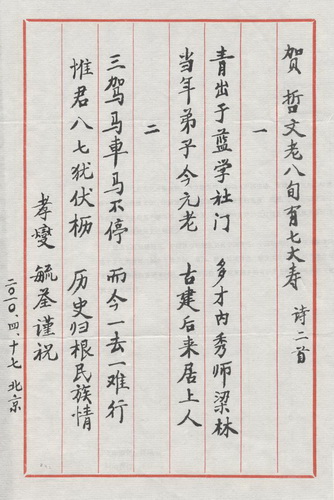 贺 哲文老八旬有七大寿 诗二首
一
青出于蓝学社门 多才内秀师梁林
当年弟子今元老 古建后来居上人
二
三驾马車马不停 而今一去一难行
惟君八七犹伏枥 历史归根民族情
孝燮 毓荃谨祝
二〇一〇、四、十七 北京